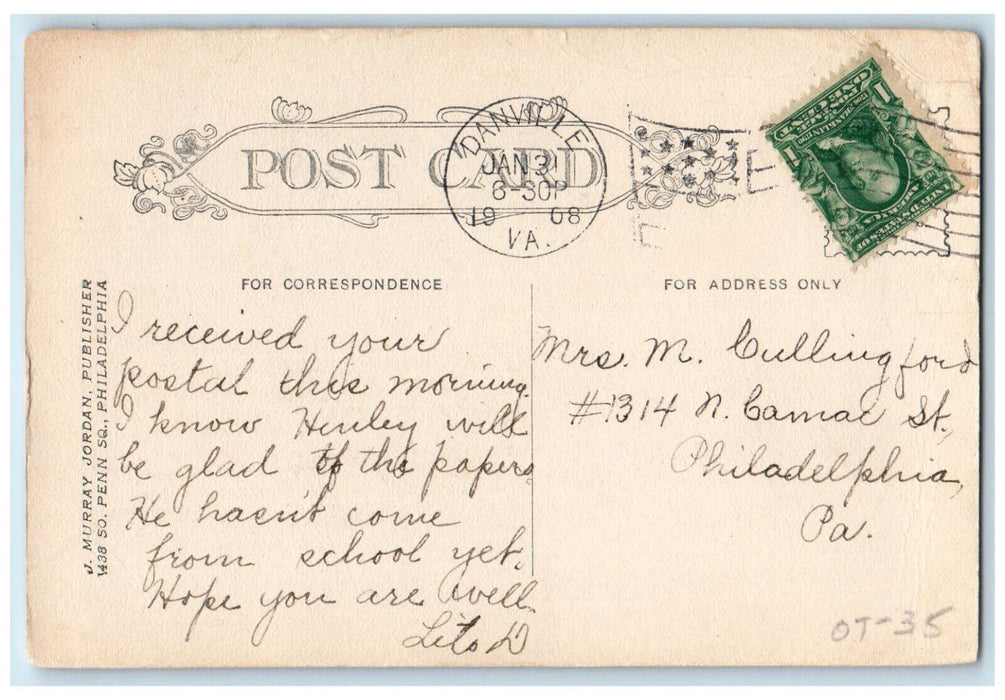 POST CARD
DANVILLE
JAN 31
6-30P
1908
VA.
ONE CENT
1
1
UNITED STATES OF
AMERICA
FOR CORRESPONDENCE
FOR ADDRESS ONLY
J. MURRAY JORDAN, PUBLISHER
1438 SO. PENN SQ., PHILADELPHIA
I received your
postal this morning.
I know Henley will
be glad of the papers
He hasn't come
from school yet.
Hope you are well.
Mrs. M. Cullingford
#1314 N. Camac St.,
Philadelphia,
Pa.
OT-35